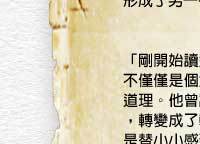 形成了另一
「剛開始讀
不僅僅是個
道理。他曾
，轉變成了
是替小小感